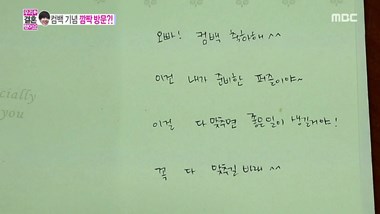 우리 결혼했어요
컴백 기념 깜짝 방문?!
MBC
오빠! 컴백 축하해 ^^
이건 내가 준비한 퍼즐이야~
이걸 다 맞추면 좋은일이 생길거야!
꼭 다 맞추길 바래 ^^
ecially
you